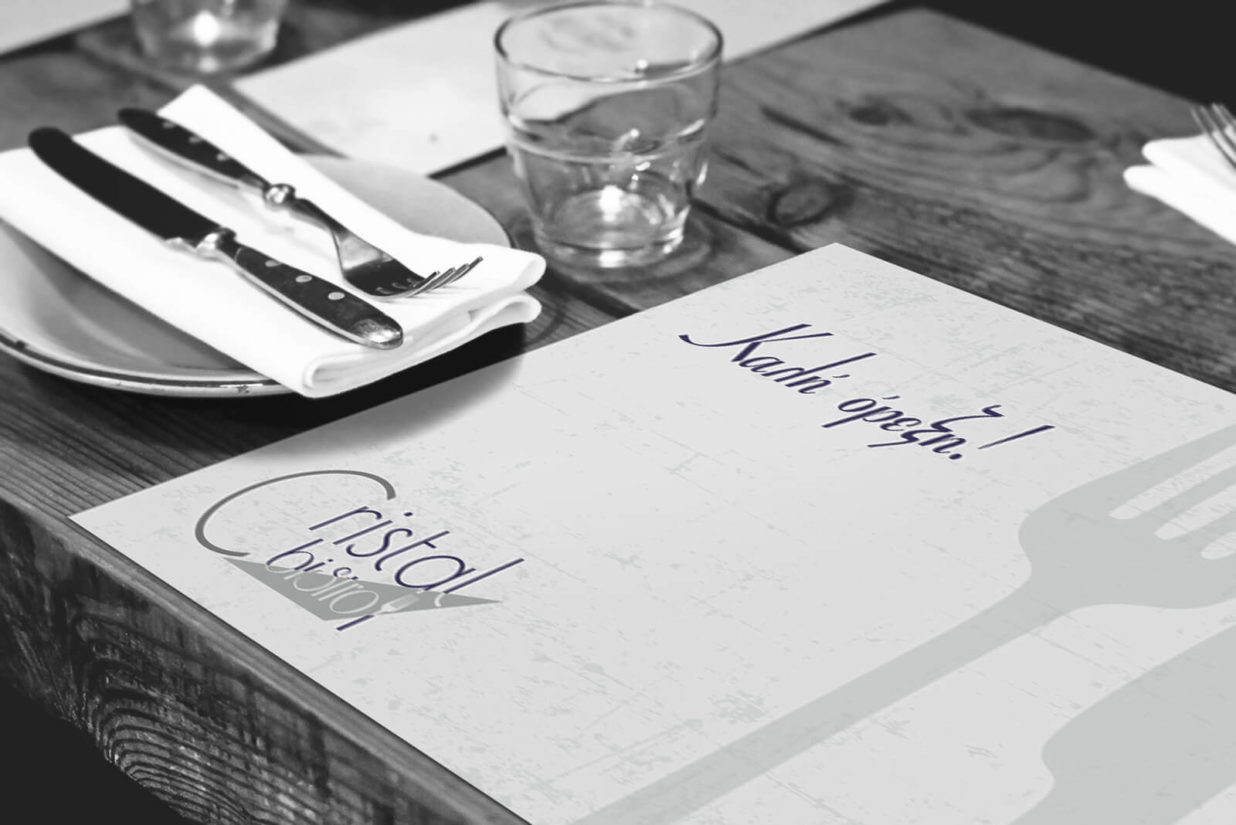 Καλή όρεξη.!
Cristal
bistrot